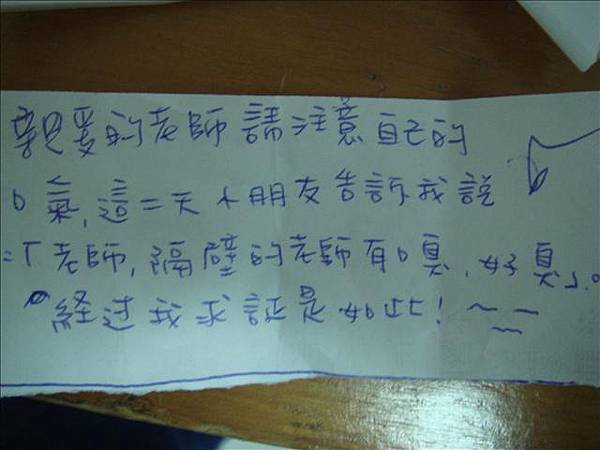 親愛的老師請注意自己的
口氣,這二天小朋友告訴我說
=「老師,隔壁的老師有口臭、好臭」。
經过我求証是如此! ~~~